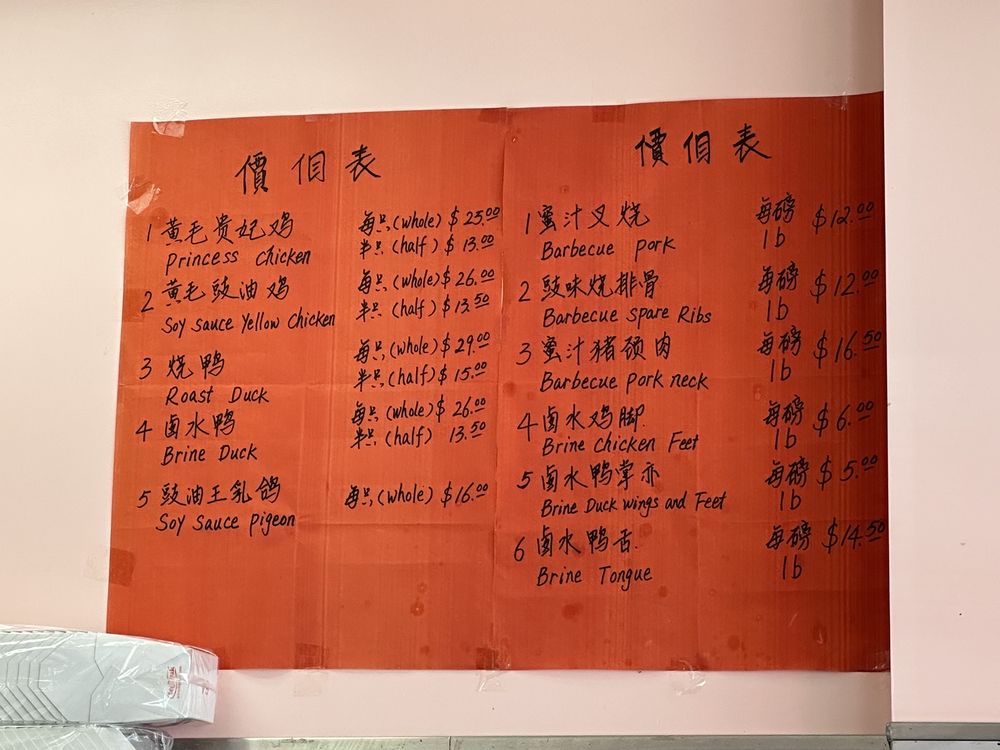 價佀表
1 黄毛贵妃鸡 每只(whole) $25.00
Princess Chicken 半只(half) $13.00
2 黄毛豉油鸡 每只(whole) $26.00
Soy Sauce Yellow Chicken 半只(half) $13.50
3 烧鸭 每只(whole) $29.00
Roast Duck 半只(half) $15.00
4 卤水鸭 每只(whole) $26.00
Brine Duck 半只(half) 13.50
5 豉油王乳鸽 每只(whole) $16.00
Soy Sauce pigeon
價佀表
1 蜜汁叉烧 每磅 $12.00
Barbecue pork 1b
2 豉味烧排骨 每磅 $12.00
Barbecue Spare Ribs 1b
3 蜜汁猪颈肉 每磅 $16.50
Barbecue pork neck 1b
4 卤水鸡脚 每磅 $6.00
Brine Chicken Feet 1b
5 卤水鸭掌亦 每磅 $5.00
Brine Duck wings and Feet 1b
6 卤水鸭舌 每磅 $14.50
Brine Tongue 1b